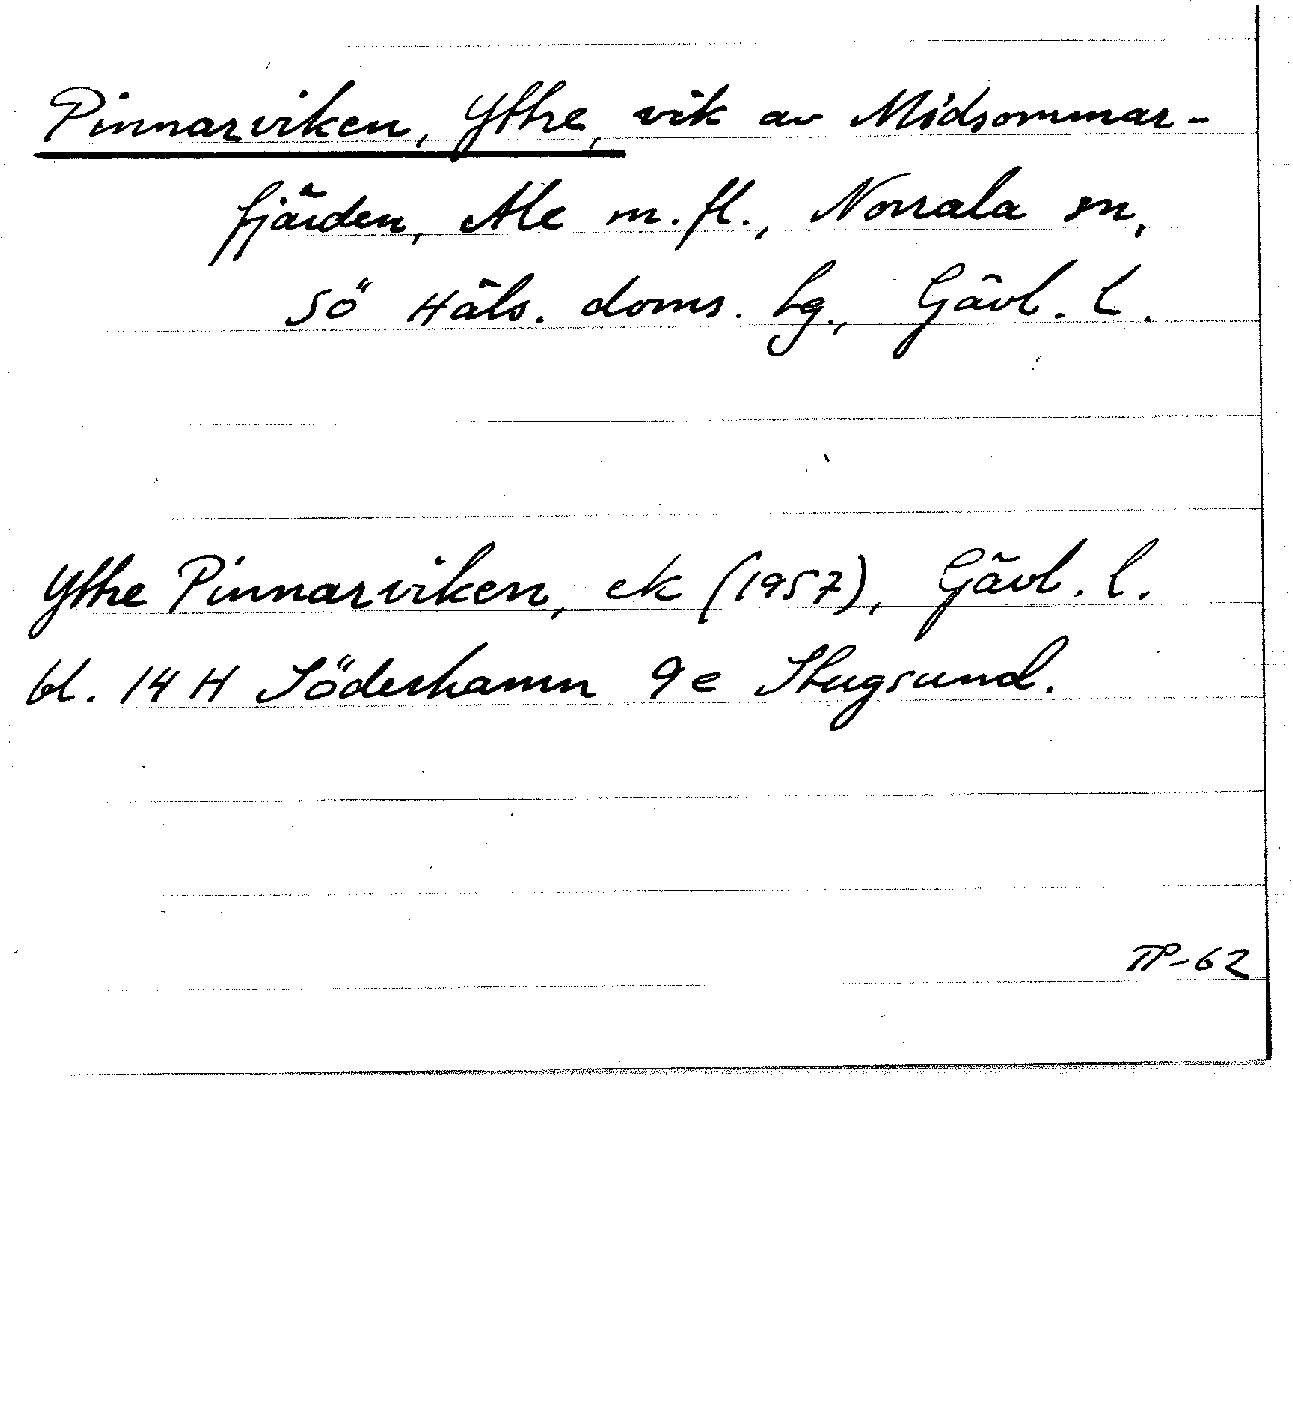 Pinnarviken, Yttre, vik av Midsommar-
fjärden, Ale m.fl., Norrala sn,
Sö Häls. doms. lg., Gävl. l.
Yttre Pinnarviken, ek (1957), Gävl. l.
bl. 14 H Söderhamn 9 e Stugsund.
TP-62